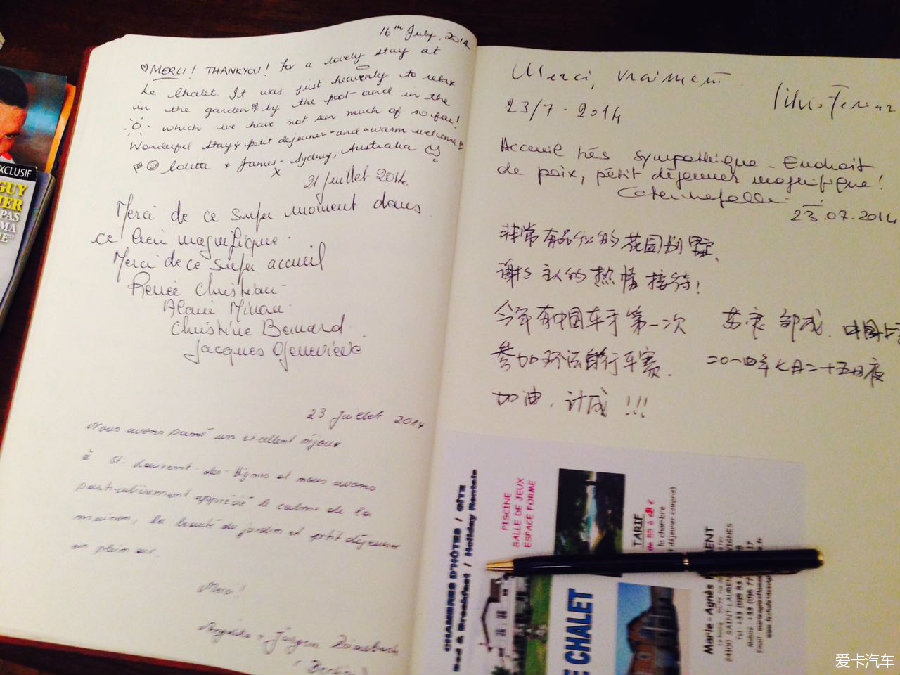 16th July, 2014
♡ MERCI! THANKYOU! for a lovely stay at
Le Chalet. It was just heavenly to relax
in the garden & by the pool - and in the
which we have not seen much of so far!
Wonderful stay & petit dejeuner - and warm welcome
& James - Sydney, Australia
x
21 juillet 2014.
Merci de ce super moment dans
ce lieu magnifique.
Merci de ce super accueil
Renée Christian
Alain
Christine Bernard
Jacques Geneviève
23 juillet 2014
Nous avons passé un excellent séjour
à St Laurent-des-Vignes et nous avons
particulièrement apprécié le calme de la
maison, la beauté du jardin et petit déjeuner
en plein air.
Merci!
Jürgen
(Berlin)
Merci, vraiment
23/7-2014
Accueil très sympathique. Endroit
de paix, petit déjeuner magnifique!
23.07.2014
非常有品位的花园别墅.
谢谢主人的热情接待!
今年有中国车手第一次
参加环法自行车赛.
加油,计成!!!
二〇一四年七月二十五日夜
CHAMBRES D'HÔTES / GÎTE
Bed & Breakfast / Holiday Rentals
PISCINE
SALLE DE JEUX
ESPACE FORME
TARIF
la chambre
E CHALET
Marie-Agnès
ENT
24100 SAINT-LAUREN
VIGNES
Tel
EXCLUSIF
GUY
PAS
MA
爱卡汽车